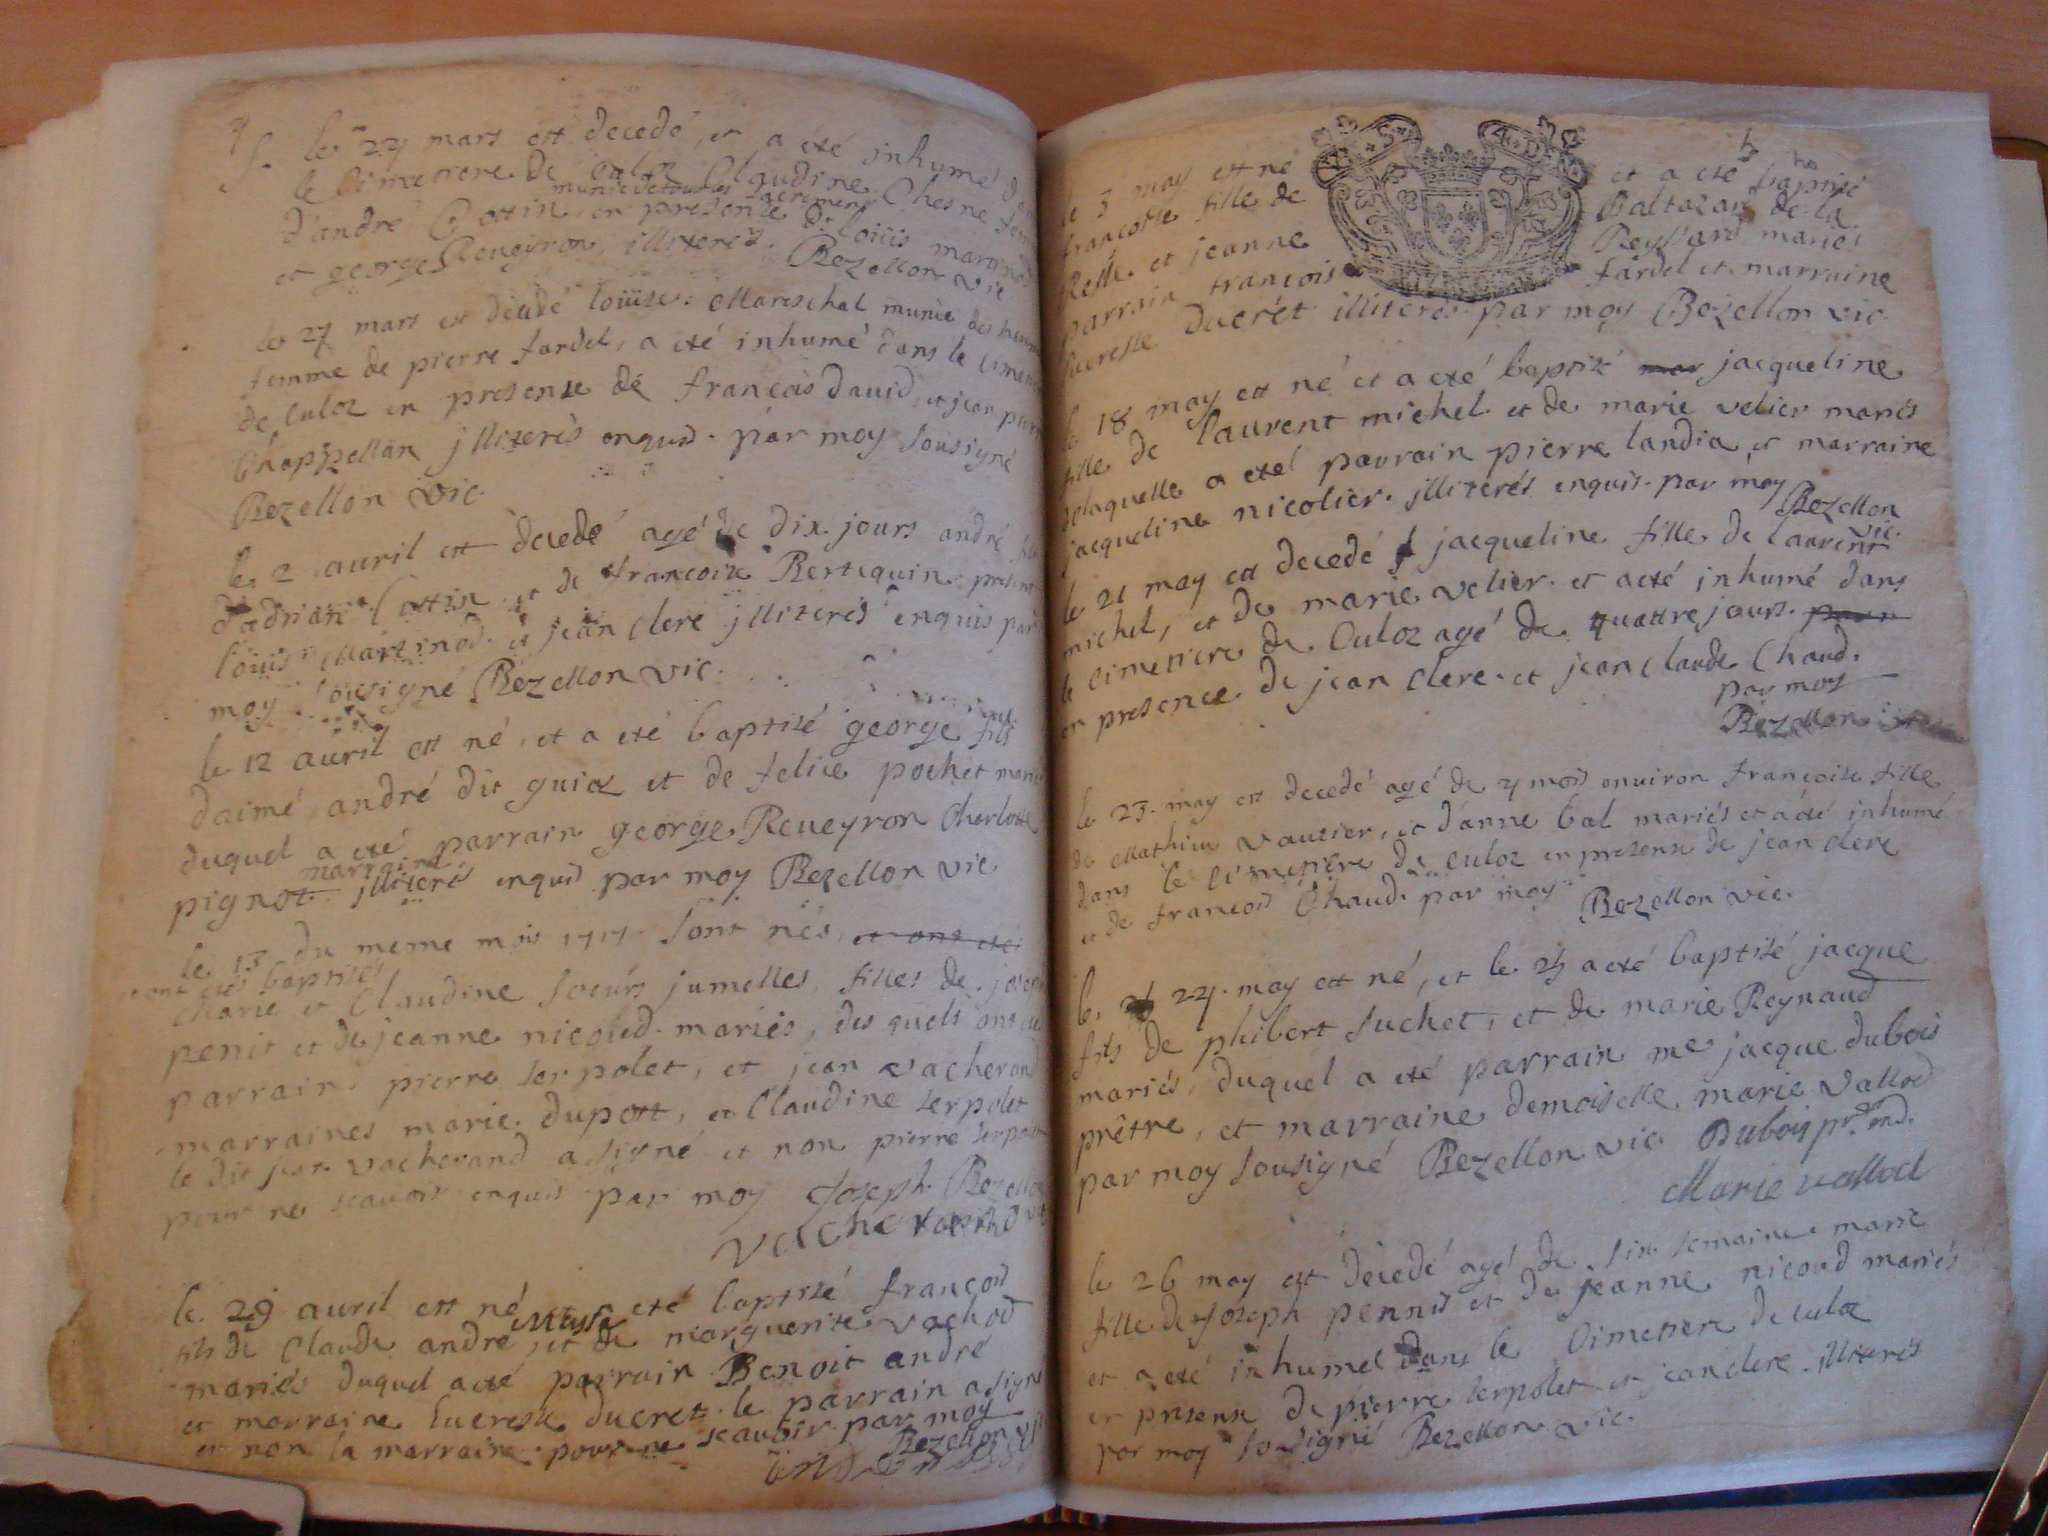 le 24 mars est decedé, et a eté inhumé
le Cimetiere de Culoz Claudine Chesne
munie de tous les sacremens
d'andré Cottin en presense de loüis martinod
et george Reneyron, illiteres. Rezellon vic
le 27 mars est decedé loüise Mareschal munie des
femme de pierre fardel, a eté inhumé dans le
de Culoz en presense de françois david, et jean pierre
Chappellan jlliterés enquis par moy sousigné
Rezellon vic
le 2 auril est decedé agé de dix jours andré
d'adrian Cottin et de françoise Bertequin
loüis Martinod et jean Clere jlliterés enquis par
moy sousigné Rezellon vic.
le 12 auril est né, et a eté baptisé george fils
daimé andré dit guick et de felice pochet
duquel a eté parrain george Reneyron Cherlotte
marraine
pignot jlliterés enquis par moy Rezellon vic
le 13 du meme mois 1717 sont nés, et ont eté
ont etés baptisés
Marie et Claudine soeurs jumelles, filles de joseph
penit et de jeanne nicoud mariés, des quels ont eté
parrain pierre serpolet, et jean vacherand
marraines marie duport, et Claudine serpolet
le dit jean vacherand a signé et non pierre serpolet
pour ne scauoir enquis par moy Joseph Rezellon
vacherand
le 29 auril est né et a eté baptisé françois
fils de Claude andré et de marguerite vachod
mariés duquel a eté parrain Benoit andré
et marraine lucresse ducret le parrain a signé
et non la marraine pour ne scauoir par moy
Rezellon vic
le 3 may est né et a eté baptisé
françoise fille de Baltazar de la
Relle et jeanne Reyssard mariés
parrain françois fardel et marraine
lucresse ducret illiterés par moy Rezellon vic
le 18 may est né et a eté baptisé jacqueline
fille de laurent michel et de marie velier mariés
delaquelle a eté parrain pierre landia et marraine
jacqueline nicolier. jlliterés enquis par moy
Rezellon vic.
le 21 may est decedé jacqueline fille de laurent
michel, et de marie velier et a eté inhumé dans
le cimetiere de Culoz agé de quattre jours
en presence de jean Clere et jean Claude Chaud.
par moy
Rezellon
le 23 may est decedé agé de 4 mois enuiron françoise fille
de Mathieu vautier, et d'anne bal mariés et a eté inhumé
dans le cimetiere de Culoz en presense de jean Clere
et de françois Chaud. par moy Rezellon vic.
le 24 may est né, et le 25 a eté baptisé jacque
fils de philbert suchet, et de marie Reynaud
mariés, duquel a eté parrain me jacque dubois
prêtre, et marraine demoiselle marie vallod
par moy sousigné Rezellon vic Dubois
Marie vallod
le 26 may est decedé agé de six semaines marie
fille de Joseph pennit et de jeanne nicoud mariés
et a eté inhumé dans le Cimetiere de culoz
en presense de pierre serpolet et jean Clere. illiterés
par moy sousigné Rezellon vic.